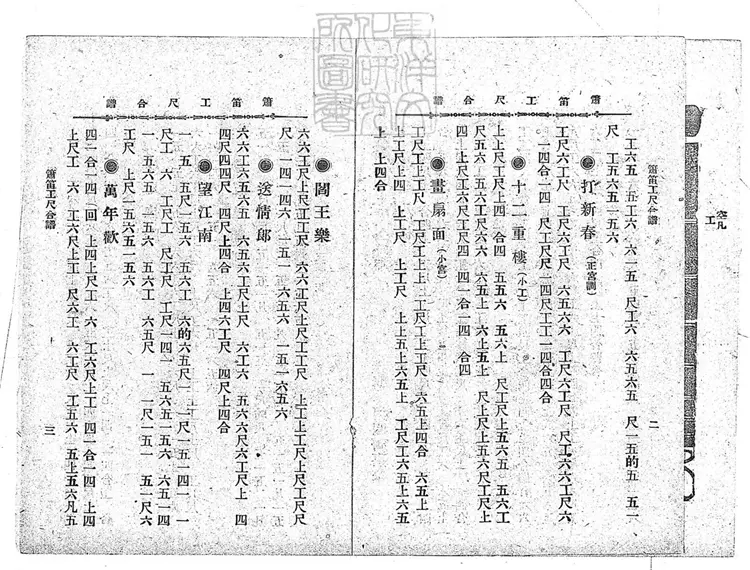 簫笛工尺合譜
簫笛工尺合譜
二
工六五 五工六 六一五 尺工六 六五六五 尺一五的五 五一
尺 工五六五一五六
打新春（正宮調）
工尺六工尺 工尺六工尺 六五六六 工尺六工尺 尺工六六工尺六
一四合一四 尺工尺尺一四尺工工一四合四合
十二重樓（小工）
上上尺工尺上四 合四 五五六 五六上 尺工尺上五六五 五六工
尺五六 五六工尺六六 六五上 六上五上 尺上尺上五六尺工尺上
四四 上尺工六尺工尺四 四一合一四 合四
畫扇面（小宮）
工尺工尺上上 工尺工上上工尺工上工尺 六五上四合 六五上
上工工尺上四 上工尺 上工尺 上上五上六五上 工尺工六五上六五
上 上四合
簫笛工尺合譜
閣王樂
六六工尺上尺工工尺 六六工尺上尺工工尺 上工上工尺上尺工尺尺
尺 一四一四六 一五一 六五六 一五一六五六
送情郎
六六工六五六五 六五六工尺上尺 六工六 五六六尺六工尺上 四
四尺四四尺 四尺上四合 上四六工尺 四尺上四合
望江南
一五 五尺一五六 五六工 六的六五尺一 一尺一五一四一 一
尺工 六 工尺工 尺工尺 工尺一四一 五六五一五六 六五一四
一 五六五 一五六 五六工 六五尺 一 一尺一五一 五一尺六
工尺 上尺一五六五一五六
萬年歡
四二合一四〔回〕上四上尺工 六 工六尺上工 四一合一四 上四
上尺工 六 工六尺上工 尺六工 六工尺 工五六 五上五六凡五
簫笛工尺合譜
三